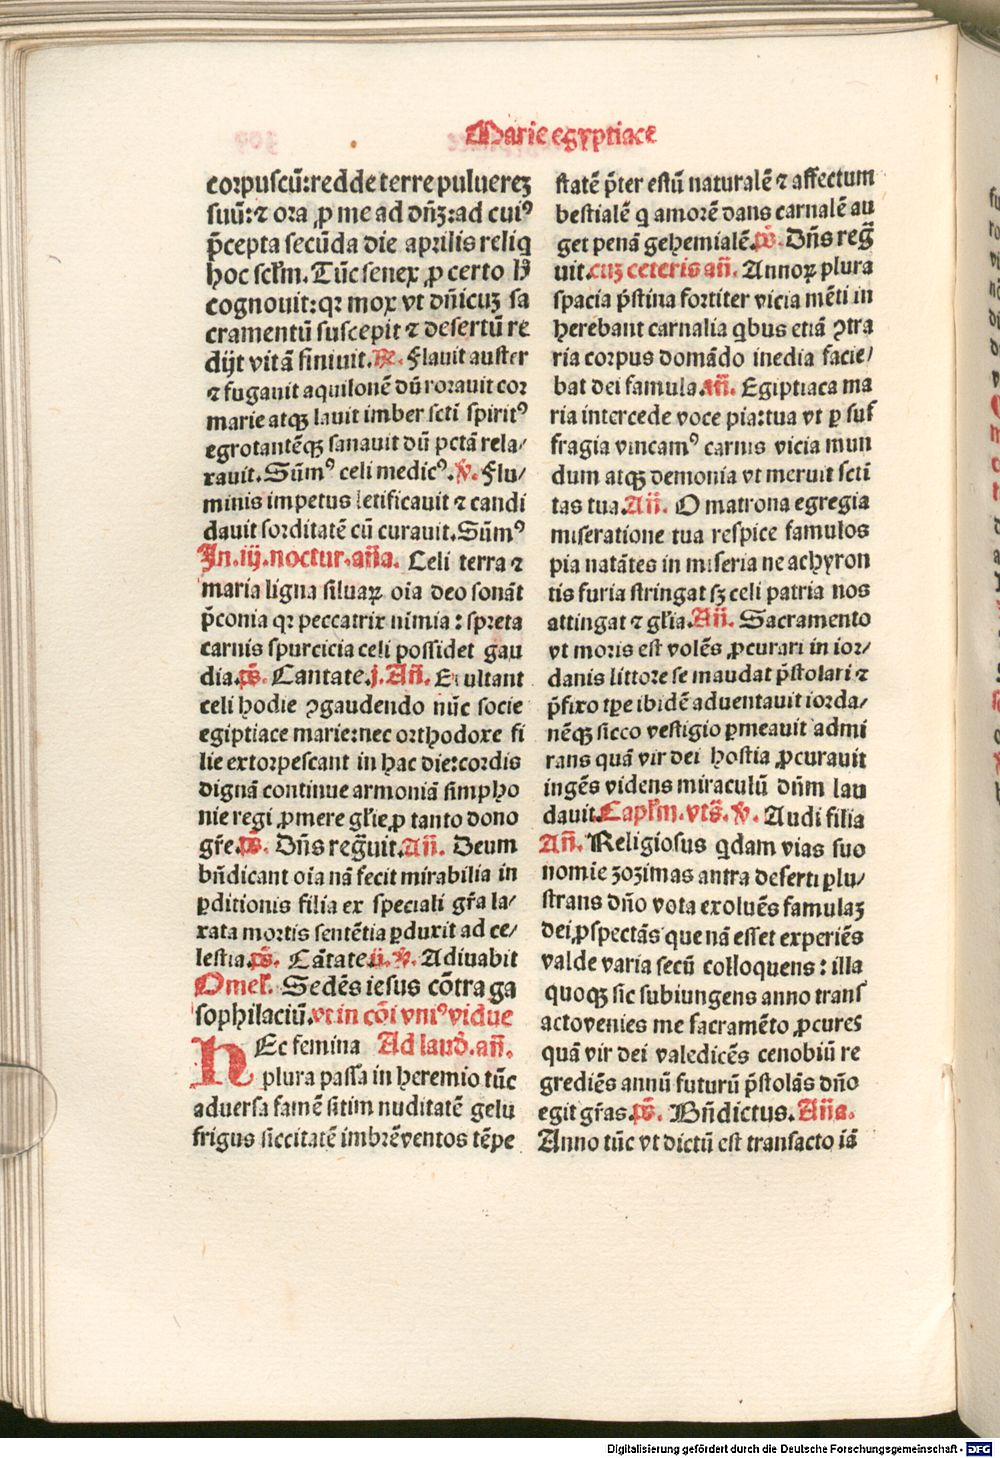 Marie egyptiace
corpuscū:redde terre puluerez
suū:⁊ ora ꝓ me ad dn̄ꝫ:ad cuiꝰ
p̄cepta secūda die aprilis reliq̄
hoc scr̄m.Tūc senex ꝓ certo
cognouit:qꝛ mox vt dn̄icuꝫ sa
cramentū suscepit ⁊ desertū re
dijt vitā finiuit.℞. Flauit auster
⁊ fugauit aquilonē dū rorauit cor
marie atqꝫ lauit imber scti spiritꝰ
egrotantēqꝫ sanauit dū pctā rela⸗
xauit.Sūmꝰ celi medicꝰ.℣. Flu⸗
minis impetus letificauit ⁊ candi
dauit sorditatē cū curauit.Sūmꝰ
In.iij.noctur.aña. Celi terra ⁊
maria ligna siluaꝝ oīa deo sonāt
p̄conia qꝛ peccatrix nimia: spreta
carnis spurcicia celi possidet gau
dia.ps̄. Cantate.j.Añ. Exultant
celi hodie ꝯgaudendo nūc socie
egiptiace marie:nec orthodoxe fi
lie extorpescant in hac die:cordis
dignā continue armoniā simpho
nie regi ꝓmere gl̄ie ꝓ tanto dono
gr̄e.ps̄. Dn̄s regn̄uit.Añ. Deum
bn̄dicant oīa nā fecit mirabilia in
ꝑditionis filia ex speciali gr̄a la⸗
xata mortis sentētia ꝑduxit ad ce⸗
lestia.ps̄. Cātate.ij.℣. Adiuabit
Omel̄. Sedēs iesus cōtra ga
sophilaciū.vt in cōi vniꝰ vidue
HEc femina Ad laud̄.añ.
plura passa in heremio tūc
aduersa famē sitim nuditatē gelu
frigus siccitatē imbrē ventos tēpe
statē p̄ter estū naturalē ⁊ affectum
bestialē q̄ amorē dans carnalē au
get penā gehemialē.ps̄. Dn̄s regn̄
uit.cuꝫ ceteris añ. Annoꝝ plura
spacia p̄stina fortiter vicia mēti in
herebant carnalia qbus etiā ꝯtra
ria corpus domādo inedia facie⸗
bat dei famula.añ. Egiptiaca ma
ria intercede voce pia:tua vt ꝑ suf
fragia vincamꝰ carnis vicia mun
dum atqꝫ demonia vt meruit scti
tas tua.Añ. O matrona egregia
miseratione tua respice famulos
pia natātes in miseria ne achyron
tis furia stringat sꝫ celi patria nos
attingat ⁊ gl̄ia.Añ. Sacramento
vt moris est volēs ꝓcurari in ior⸗
danis littore se maudat p̄stolari ⁊
p̄fixo tꝑe ibidē aduentauit iorda⸗
nēqꝫ sicco vestigio ꝑmeauit admi
rans quā vir dei hostia ꝓcurauit
ingēs videns miraculū dn̄m lau
dauit.Capl̄m.vts̄.℣. Audi filia
Añ. Religiosus qdam vias suo
nomie zozimas antra deserti ꝑlu⸗
strans dn̄o vota exoluēs famulaꝫ
dei ꝓspectās que nā esset experiēs
valde varia secū colloquens: illa
quoqꝫ sic subiungens anno trans
acto venies me sacramēto ꝓcures
quā vir dei valedicēs cenobiū re
grediēs annū futurū p̄stolās dn̄o
egit gr̄as.ps̄. Bn̄dictus.Aña.
Anno tūc vt dictū est transacto iā
Digitalisierung gefördert durch die Deutsche Forschungsgemeinschaft - DFG